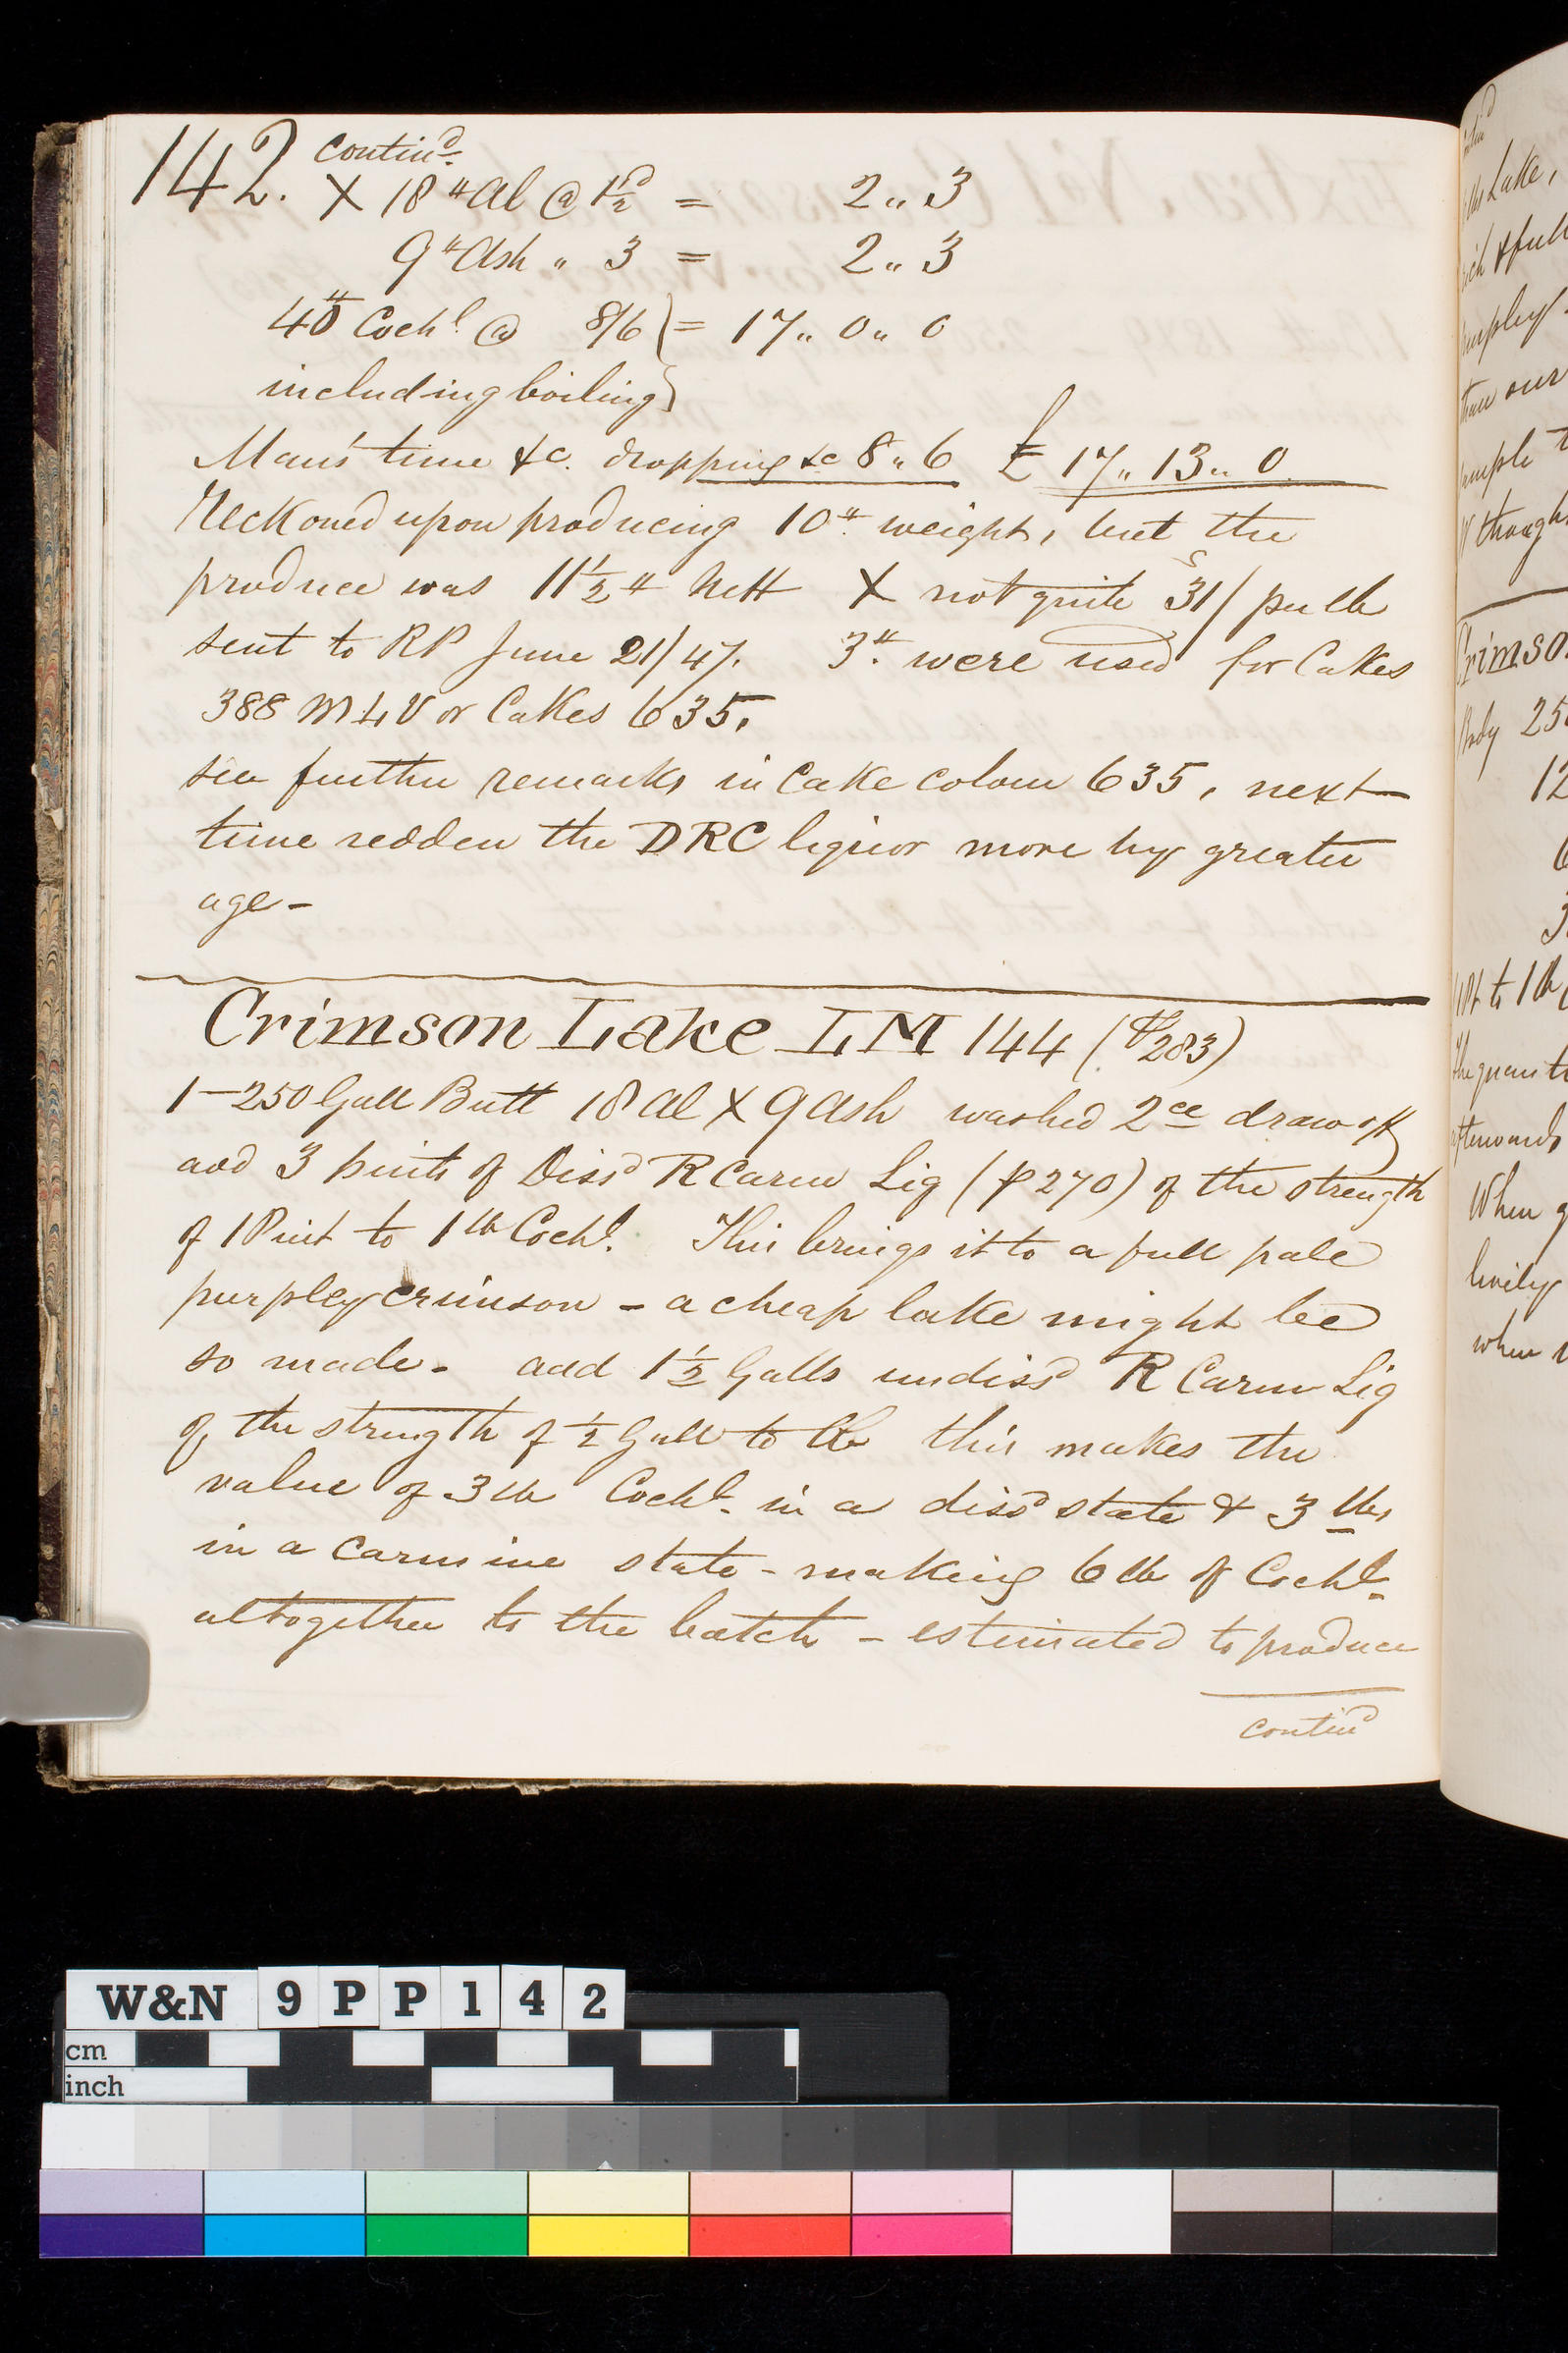 142. Contin.d
X 18 " Al @ 1½d = 2 „ 3
9 " Ash „ 3 = 2 „ 3
40 " Coch.l @ 8/6 } = 17 „ 0 „ 0
including boiling }
Man's time &c. dropping &c 8 „ 6 £ 17 „ 13 „ 0
Reckoned upon producing 10 " weight, but the
produce was 11½ " Nett X not quite 31s/ per lb
sent to RP June 21/47. 3 " were used for Cakes
388 M L V or Cakes 635.
see further remarks in Cake colour 635, next
time redden the DRC liquor more by greater
age -
Crimson Lake LM 144 (P 283)
1 - 250 Gall Butt 18 Al X 9 Ash washed 2ce draw off
add 3 pints of Dissd R Carm Liq (P 270) of the strength
of 1 Pint to 1 lb Coch.l This brings it to a full pale
purpley crimson - a cheap lake might be
so made - add 1½ Galls undissd R Carm Liq
of the strength of ½ Gall to lb this makes the
value of 3 lb Coch.l in a dissd state & 3 lbs
in a carmine state - making 6 lb of Coch.l
altogether to the batch - estimated to produce
contind
Lake,
than our
Crimso
Body 25
12
3
to 1 lb
afterwards
When
lively
when
W&N 9PP142
cm
inch